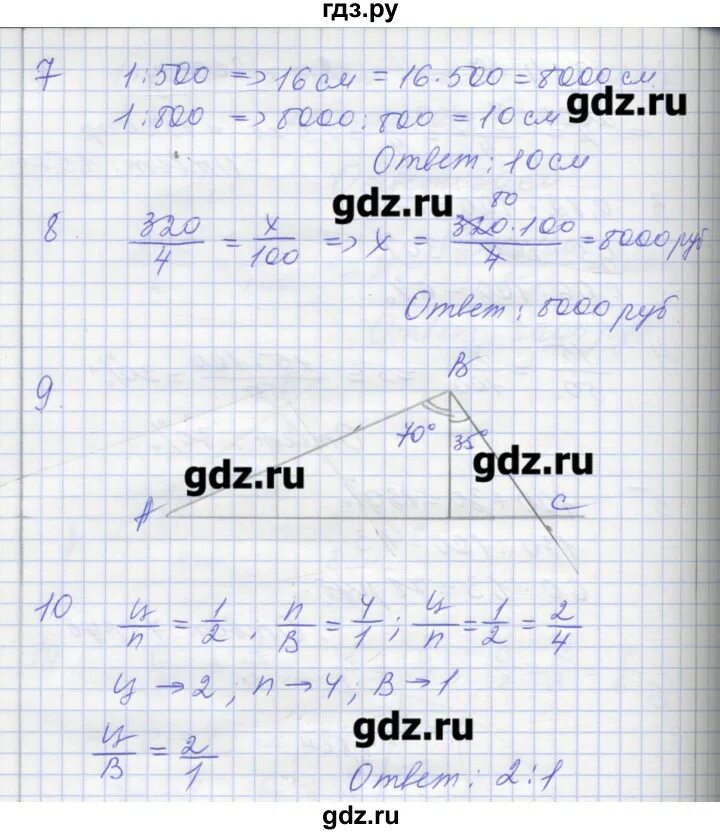 гдз.ру
7 1:500 => 16 см = 16·500 = 8000 см
gdz.ru
1:800 => 8000:800 = 10 см
Ответ: 10 см
gdz.ru
8 320/4 = x/100 => x = 320·100/4 = 8000 руб
80
Ответ: 8000 руб.
9.
В
70° 35°
gdz.ru gdz.ru
А С
10 ц/п = 1/2, п/В = 4/1; ц/п = 1/2 = 2/4
ц → 2; п → 4; В → 1
ц/В = 2/1
gdz.ru
Ответ: 2:1
gdz.ru